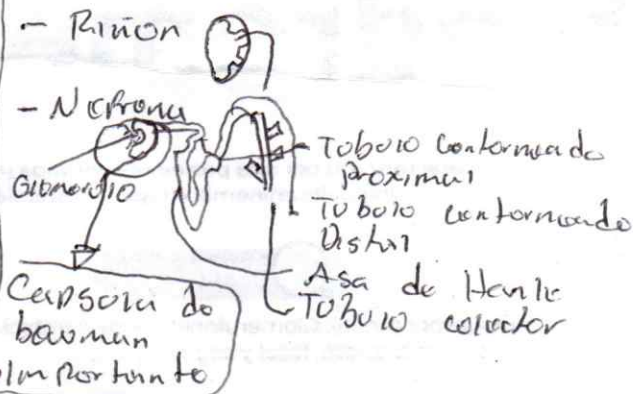 - Riñon
- Nefrona
Glomerulo
Tobulo contorneado
proximal
Tobulo contorneado
Distal
Asa de Henle
Tobulo colector
Capsola de
bowman
importante